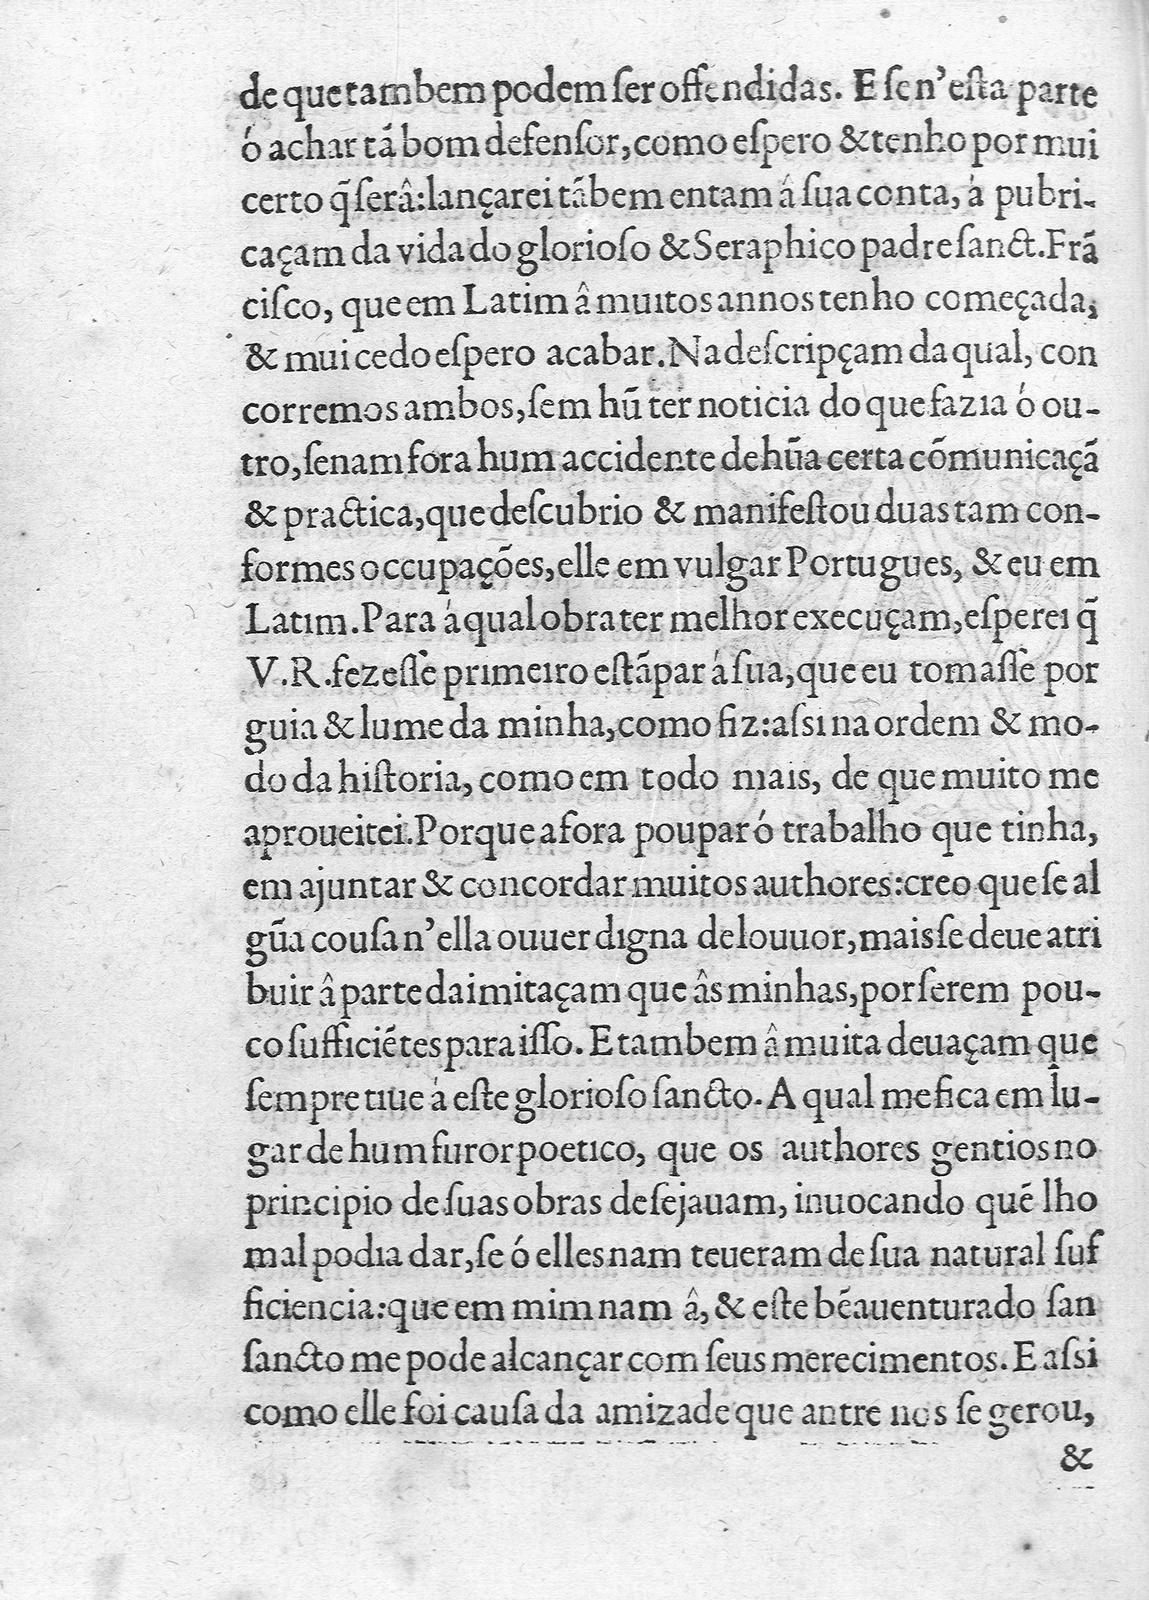 de que tambem podem ſer offendidas. E ſe n'eſta parte
ó achar tã bom defenſor, como eſpero & tenho por mui
certo q̃ ſerâ: lançarei tãbem entam â ſua conta, á pubri-
caçam da vida do glorioſo & Seraphico padre ſanct. Frã
ciſco, que em Latim â muitos annos tenho começada,
& mui cedo eſpero acabar. Na deſcripçam da qual, con
corremos ambos, ſem hũ ter noticia do que fazia ó ou-
tro, ſenam fora hum accidente de hũa certa cõmunicaçã
& practica, que deſcubrio & manifeſtou duas tam con-
formes occupações, elle em vulgar Portugues, & eu em
Latim. Para á qual obra ter melhor execuçam, eſperei q̃
V.R. fezeſſe primeiro eſtãpar á ſua, que eu tomaſſe por
guia & lume da minha, como fiz: aſsi na ordem & mo-
do da hiſtoria, como em todo mais, de que muito me
aproueitei. Porque afora poupar ó trabalho que tinha,
em ajuntar & concordar muitos authores: creo que ſe al
gũa couſa n'ella ouuer digna de louuor, mais ſe deue atri
buir â parte da imitaçam que âs minhas, por ſerem pou-
co ſufficiẽtes para iſſo. E tambem â muita deuaçam que
ſempre tiue á eſte glorioſo ſancto. A qual me fica em lu-
gar de hum furor poetico, que os authores gentios no
principio de ſuas obras deſejauam, inuocando quẽ lho
mal podia dar, ſe ó elles nam teueram de ſua natural ſuf
ficiencia: que em mim nam â, & eſte bẽauenturado ſan
ſancto me pode alcançar com ſeus merecimentos. E aſsi
como elle foi cauſa da amizade que antre nos ſe gerou,
&